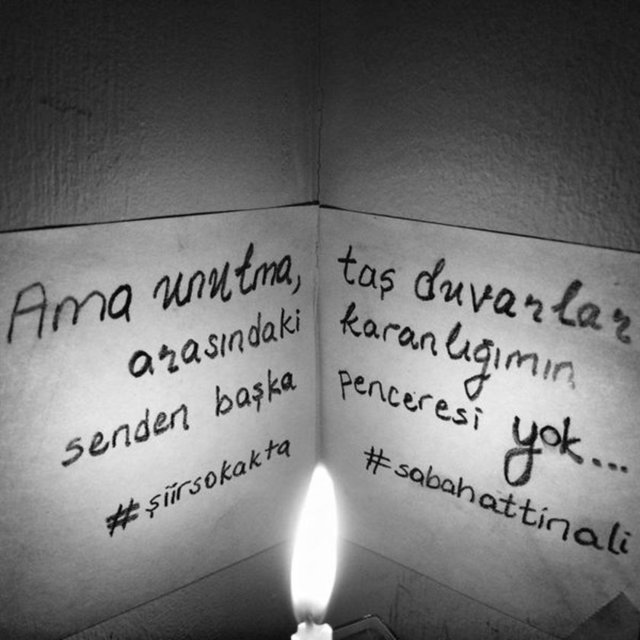 Ama unutma, taş duvarlar
arasındaki karanlığımın
senden başka penceresi yok...
#şiirsokakta #sabahattinali